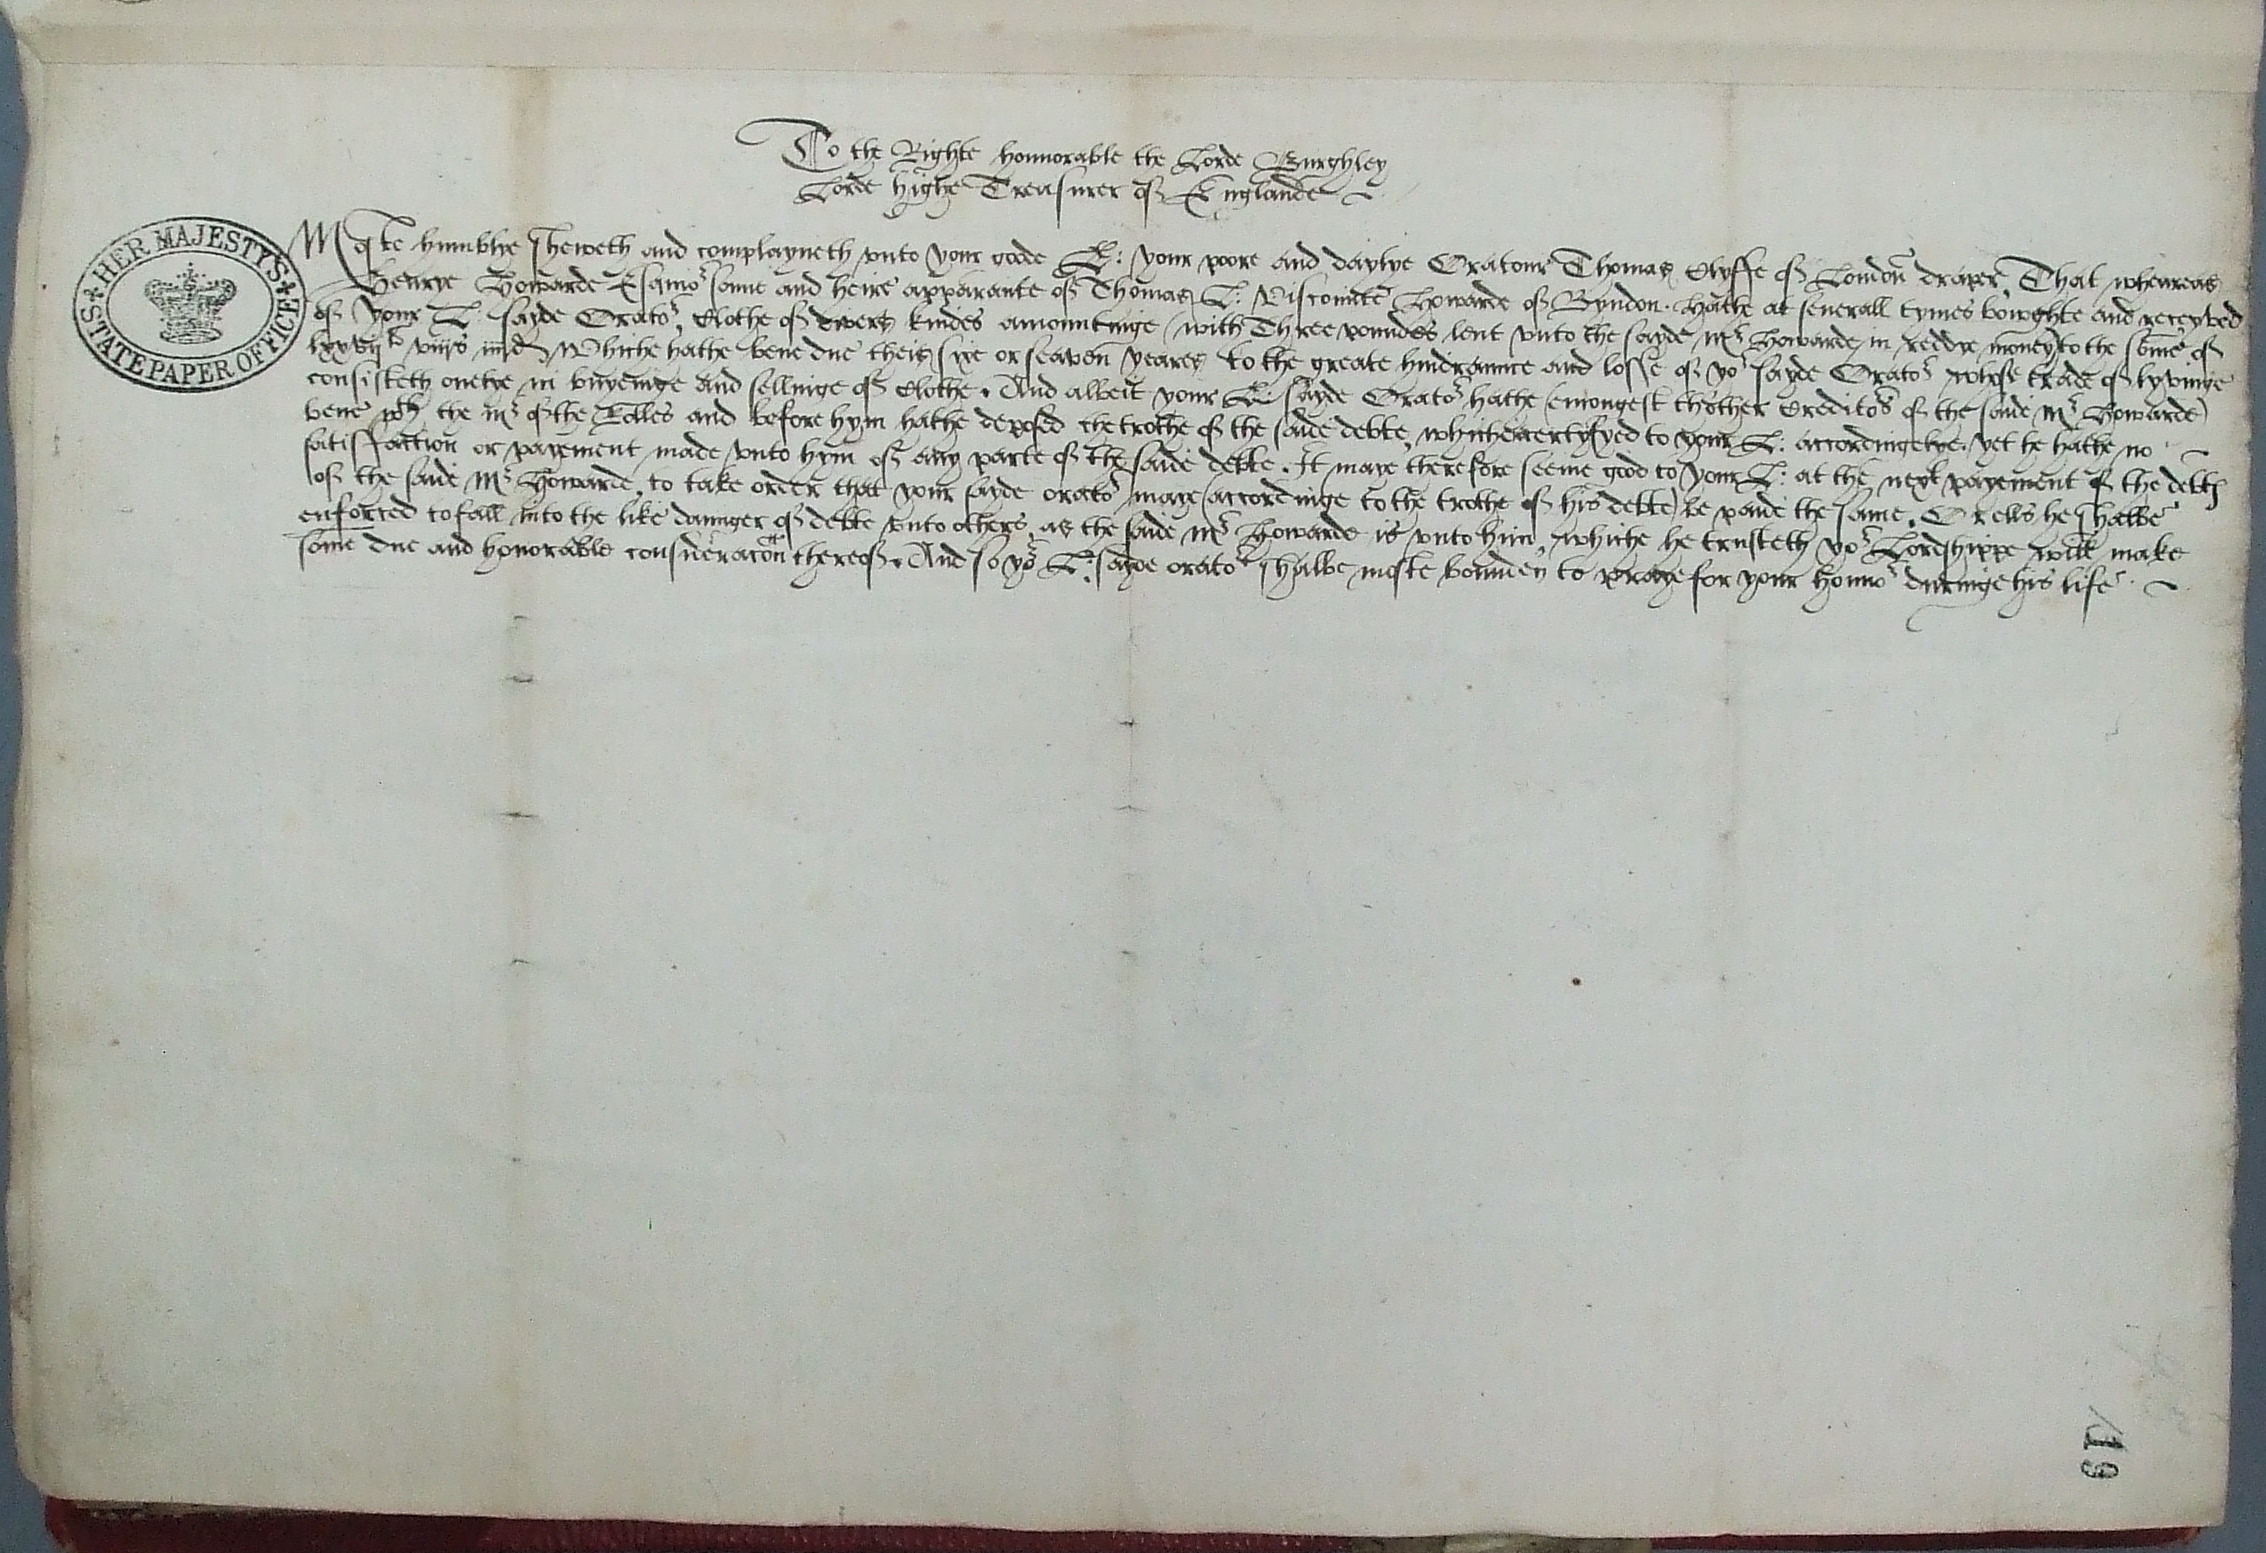 To the Righte honnorable the Lorde Burghley
Lorde highe Treasurer of Englande
HER MAJESTYS
STATE PAPER OFFICE
Moste humblye sheweth and complayneth vnto your goode L: your poore and daylye Oratour Thomas Clyffe of London draper, That wheareas
Henrye Howarde Esqnio.r sonne and heire apparante of Thomas L: Viscounte Howarde of Byndon. Hathe at seuerall tymes bowghte and receyved
of your L: sayde Orato.r, Clothe of divers kindes amountinge with Three poundes lent vnto the sayde m.r Howarde in reddye money to the some of
viijs iiijd Whiche hathe bene due theis sixe or seaven yeares to the greate hinderaunce and losse of yo.r sayde Orato.r whose trade of lyvinge
consisteth onelye in buyeinge and sellinge of Clothe. And albeit your L: sayde Orato.r hathe (emongest thother Credito.rs of the saide m.r Howarde)
bene w.th the m.r of the Rolles and before hym hathe deposed the trothe of the saide debte, whiche certyfyed to your L: accordingelye. yet he hathe no
satisfaction or payement made vnto hym of any parte of the saide debte. It maye therefore seeme good to your L: at the next payement of the debts
of the saide m.r Howarde, to take order that your sayde orato.r maye (accordinge to the trothe of his debte) be paide the same. Or ells he shalbe
enforced to fall into the like daunger of debte vnto others, as the saide m.r Howarde is vnto him, whiche he trusteth yo.r Lordshippe will make
some due and honorable consideracon thereof. And so yo.r L: sayde orato.r shalbe moste bounden to praye for your hono.r duringe his life.
19